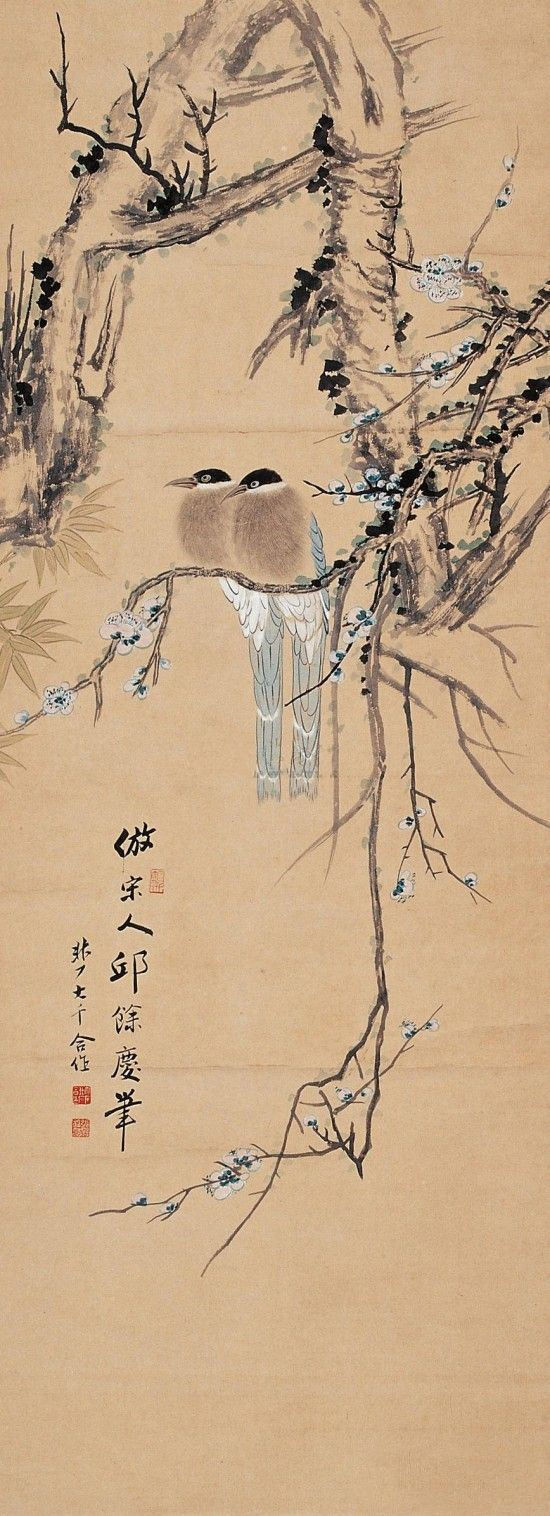 倣宋人邱餘慶筆
非厂大千合作